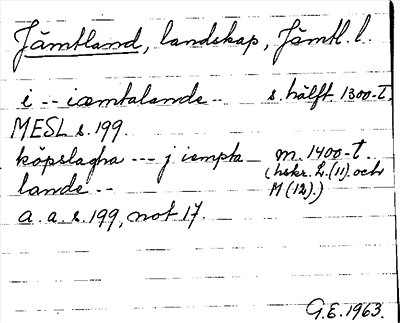 Jämtland, landskap, Jämtl. l.
i -- iæmtalande -- s. hälft 1300-t.
MESL s. 199.
köpslagha --- j iempta m. 1400-t.
lande -- (hskr. L. (11). och
M (12).)
a. a. s. 199, not 17.
G.E. 1963.